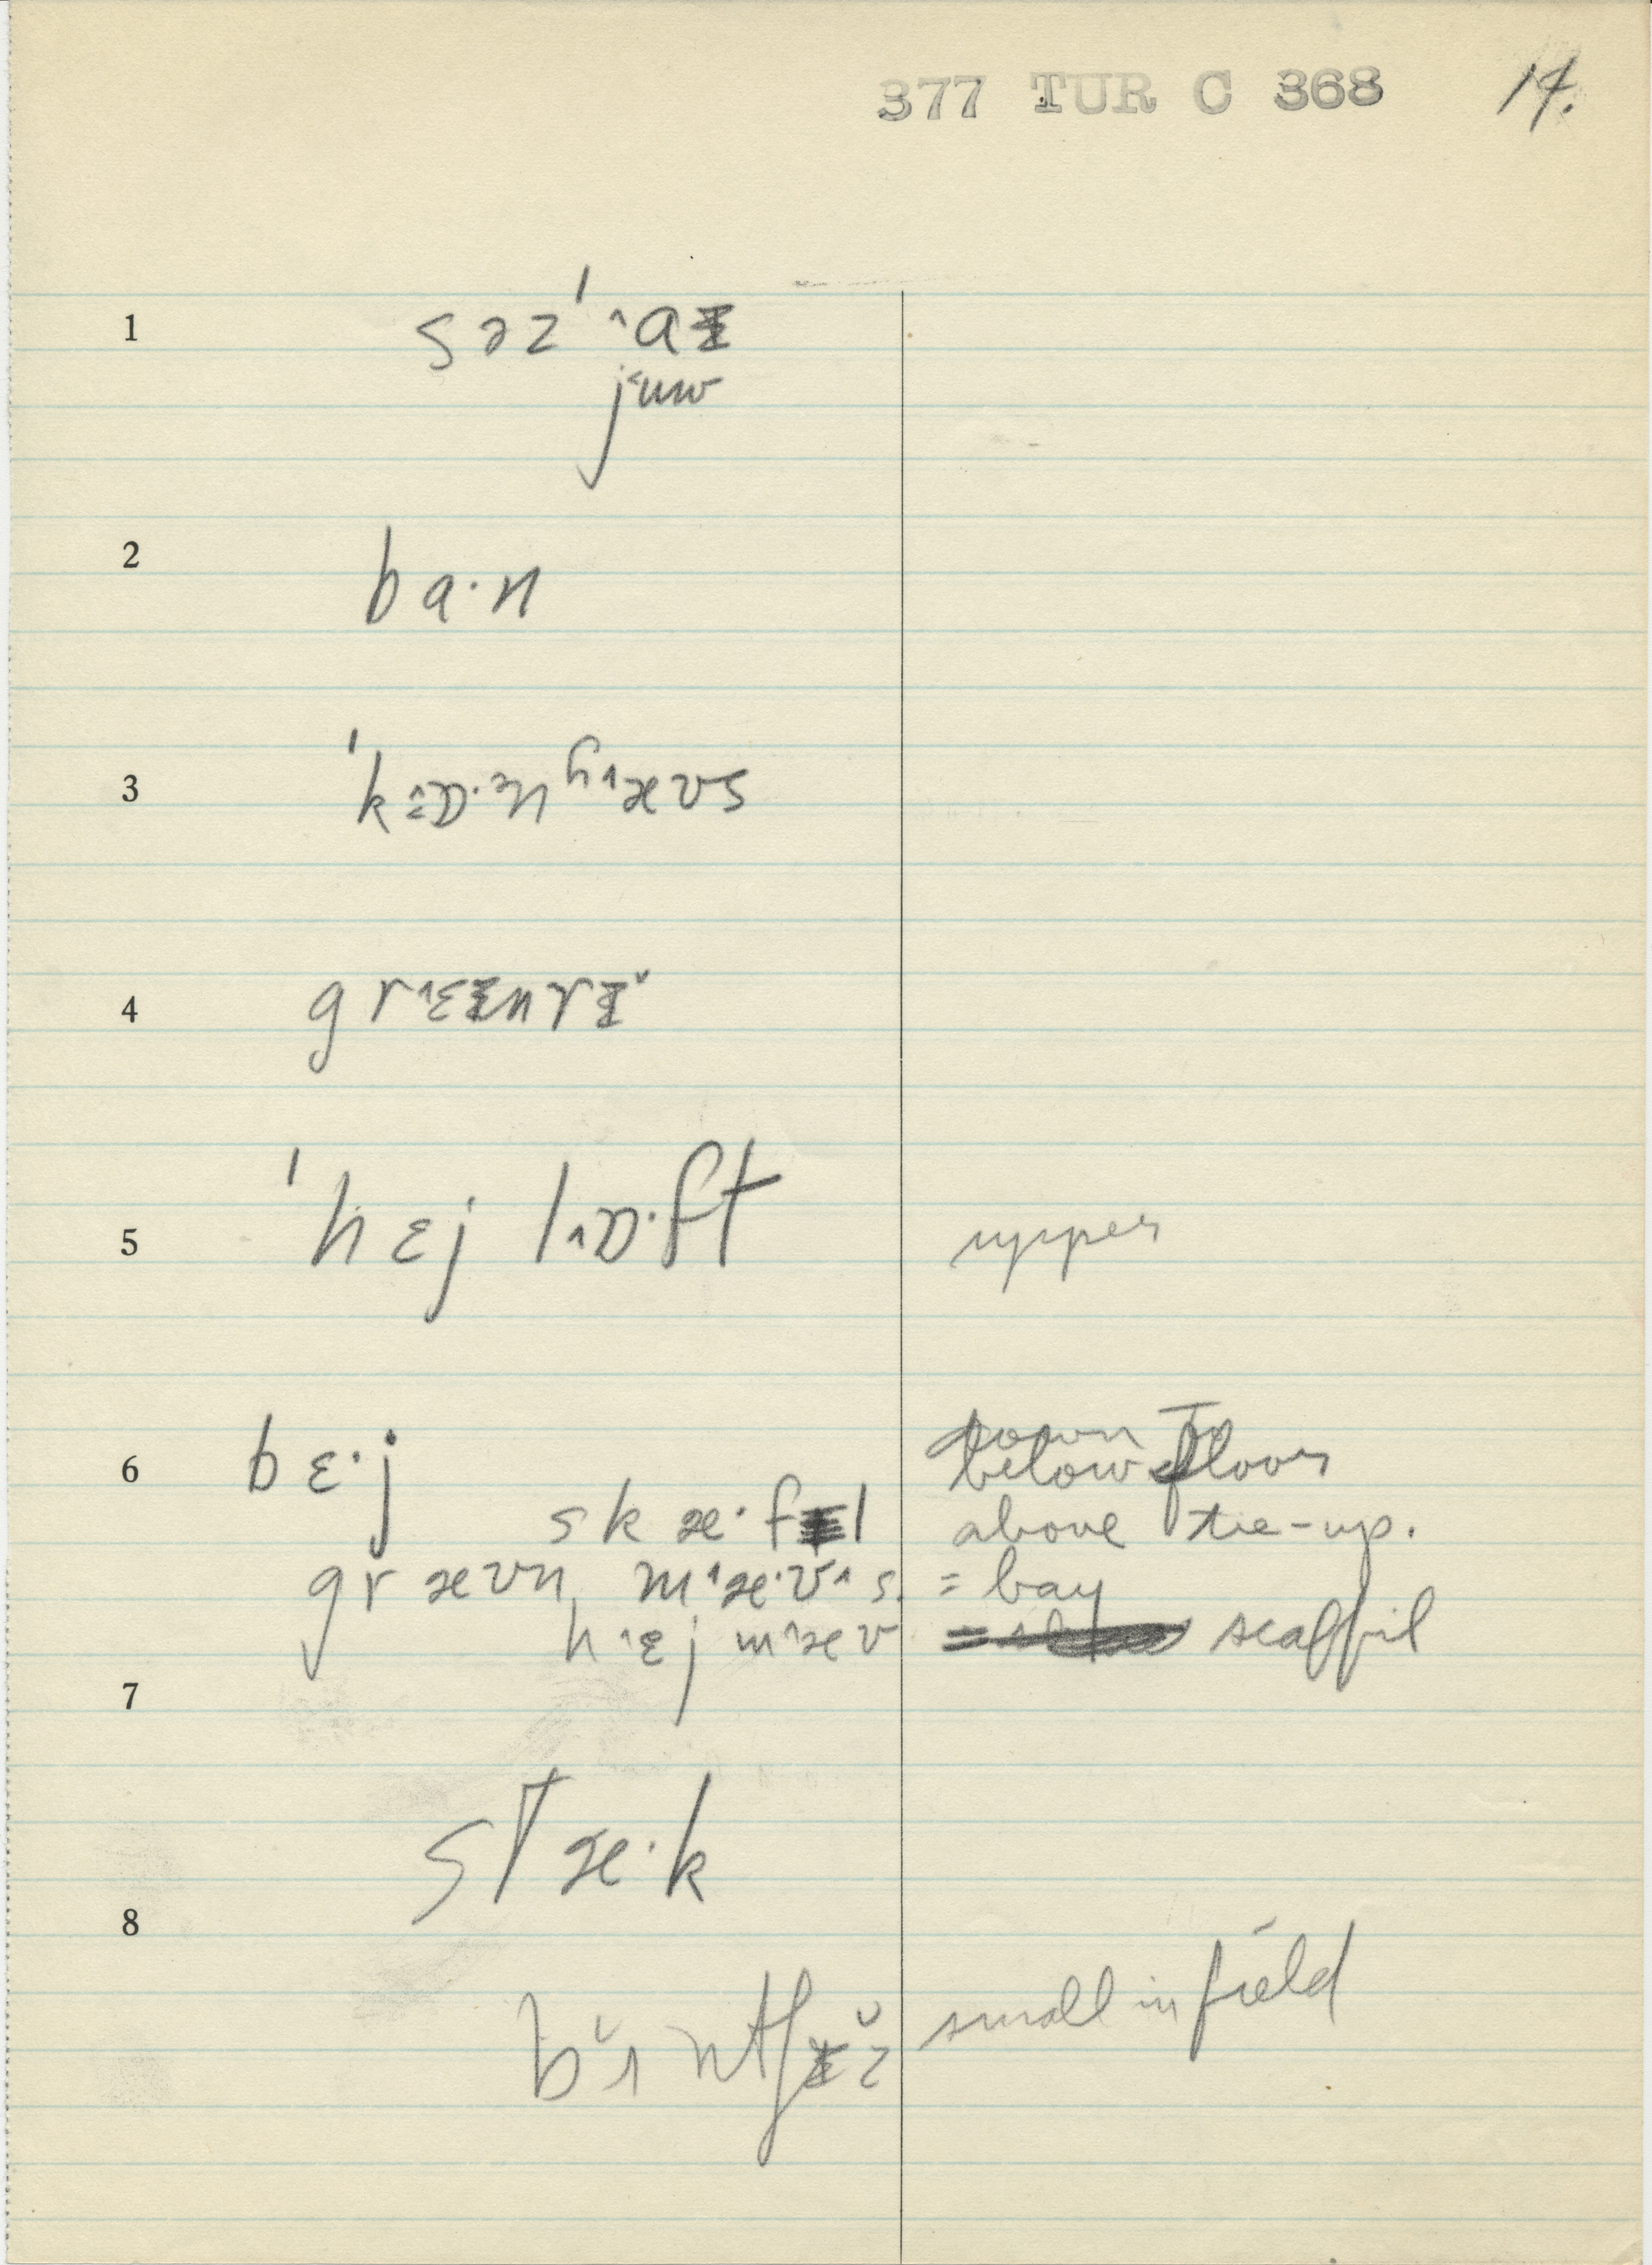 377 TUR C 368 14.
1 səz ˈ˄aɪ
j˂uw
2 ba·n
3 ˈk˄ɒ·ᵊn ʰ˄æʊs
4 gr˄ɛɪnrɪ˅
5 ˈhɛj l˄ɒ·ft upper
6 bɛ·j down To
below floor
skæ·fɪl above tie-up.
græʊn m˄æ·ʊ˄s. = bay
h˄ɛj m˄æʊ scaffil
7
stæ·k
8
b˅ʌntʃɪ˅z small in field